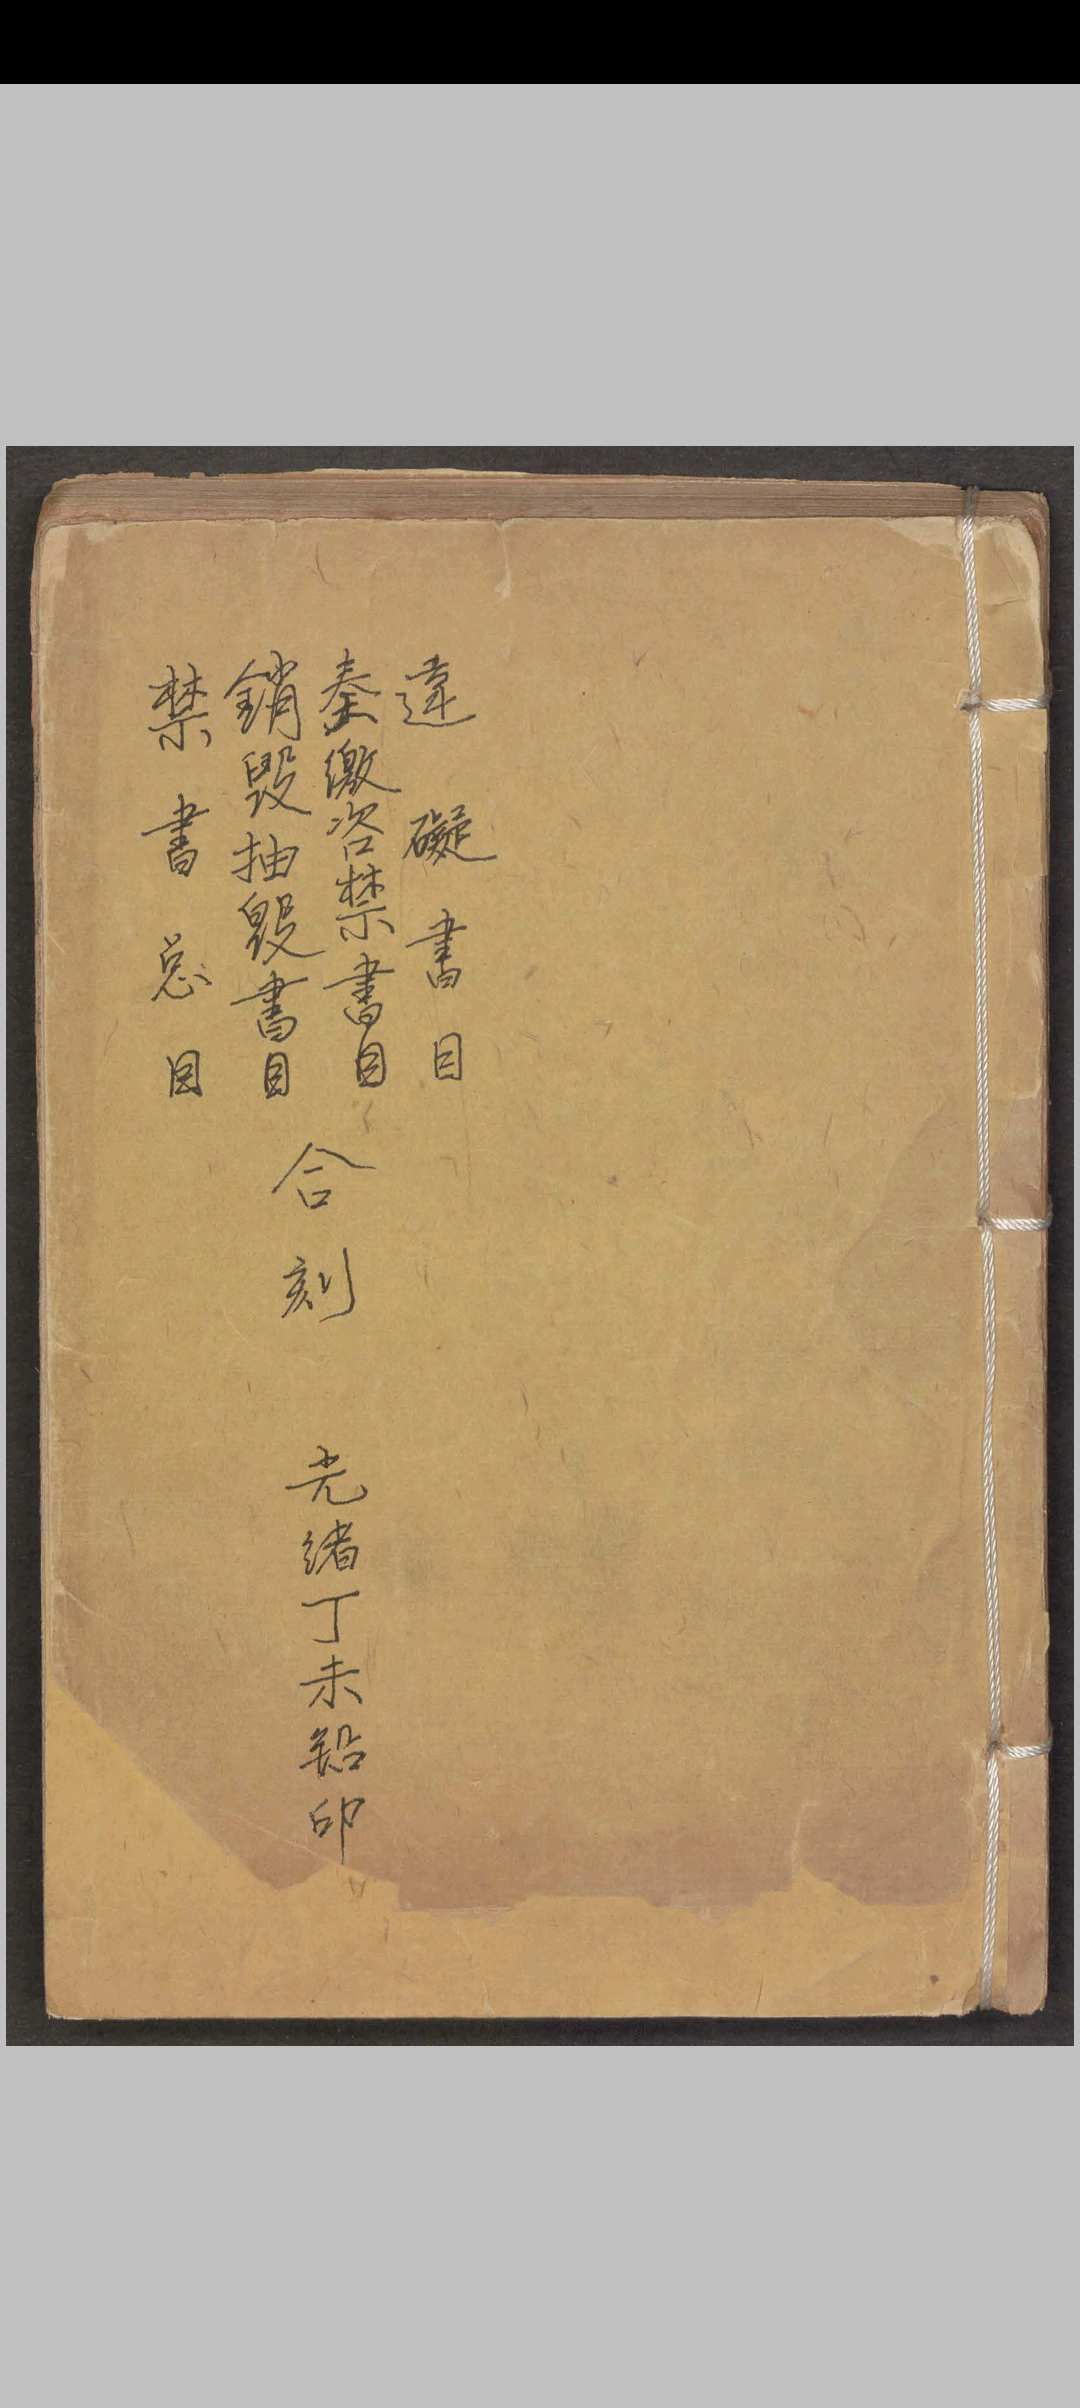 違礙書目
奏繳咨禁書目
銷毀抽毀書目
禁書总目
合刻
光緒丁未鉛印